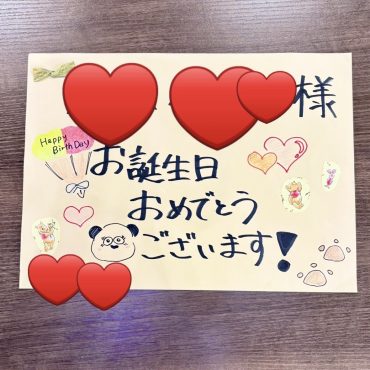 様
Happy
BirthDay
お誕生日
おめでとう
ございます!